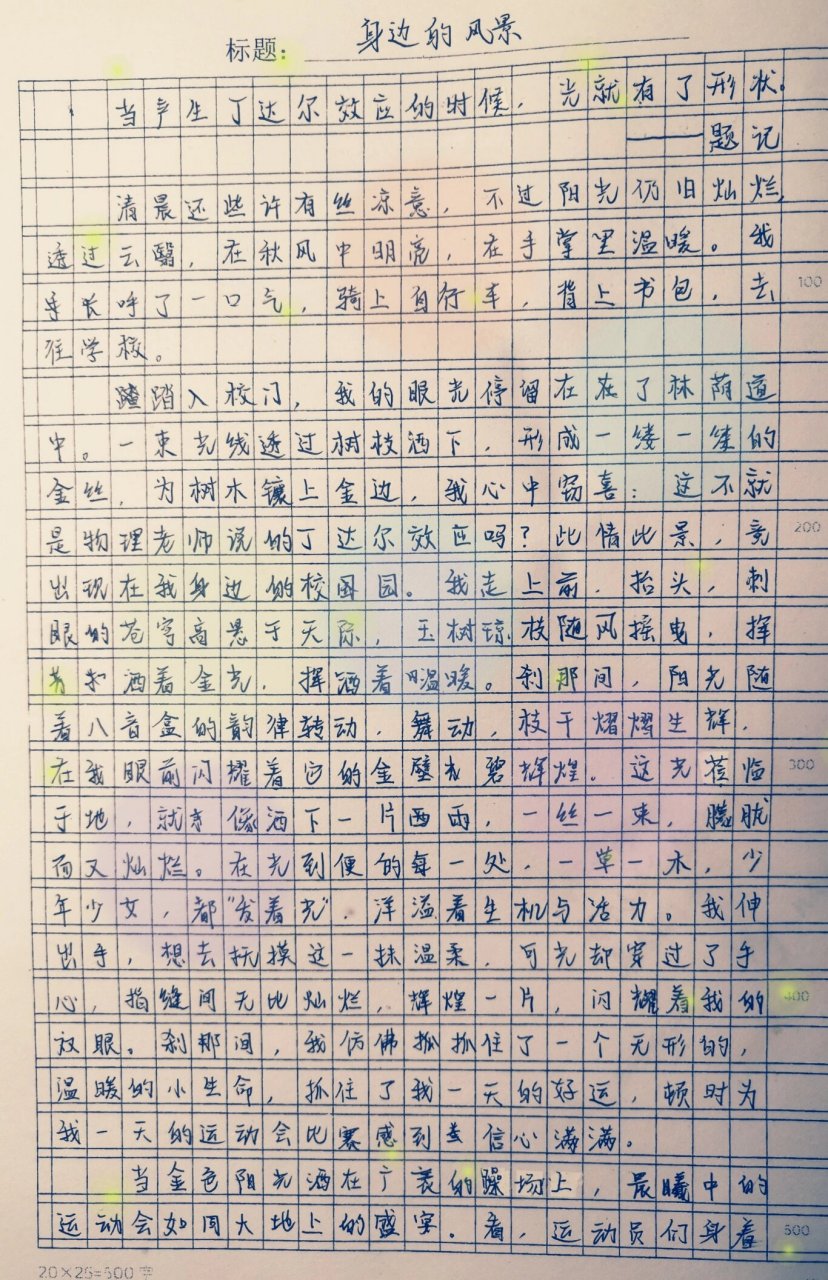 标题: 身边的风景
当产生丁达尔效应的时候，光就有了形状。
——题记
清晨还些许有丝凉意，不过阳光仍旧灿烂，
透过云翳，在秋风中明亮，在手掌里温暖。我
长呼了一口气，骑上自行车，背上书包，去 100
往学校。
踏入校门，我的眼光停留在在了林荫道
中。一束光线透过树枝洒下，形成一缕一缕的
金丝，为树木镶上金边，我心中窃喜：这不就
是物理老师说的丁达尔效应吗？此情此景，竟 200
出现在我身边的校园。我走上前，抬头，刺
眼的苍穹高悬于天际，玉树琼枝随风摇曳，挥
洒着金光，挥洒着温暖。刹那间，阳光随
着八音盒的韵律转动，舞动，枝干熠熠生辉，
在我眼前闪耀着它的金璧光碧辉煌。这光莅临 300
于地，就像洒下一片西雨，一丝一束，朦胧
而又灿烂。在光到便的每一处，一草一木，少
年少女，都“发着光”，洋溢着生机与活力。我伸
出手，想去抚摸这一抹温柔，可光却穿过了手
心，指缝间无比灿烂，辉煌一片，闪耀着我的 400
双眼。刹那间，我仿佛抓抓住了一个无形的，
温暖的小生命，抓住了我一天的好运，顿时为
我一天的运动会比赛感到信心满满。
当金色阳光洒在广袤的躁场上，晨曦中的
运动会如同大地上的盛宴。看，运动员们身着 500
20×25=500字